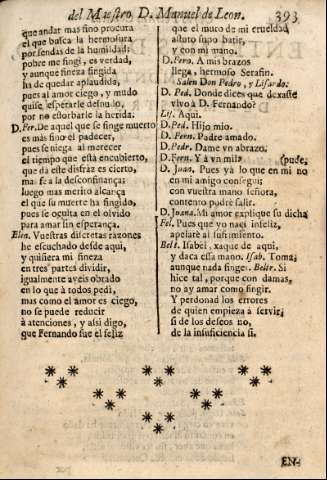 del Maestro D. Manuel de Leon. 393
que andar mas fino procura
el que busca la hermosura
por sendas de la humildad:
pobre me fingi, es verdad,
y aunque fineza fingida
ha de quedar aplaudida,
pues al amor ciego, y mudo
quise esperarle desnudo,
por no estorbarle la herida.
D. Fer. De aquel que se finge muerto
es mas fino el padecer,
pues se niega al merecer
el tiempo que està encubierto,
que dà este disfraz es cierto,
mas fe a la desconfianças
luego mas merito alcança
el que su muerte ha fingido,
pues se oculta en el olvido
para amar sin esperança.
Elen. Vuestras discretas razones
he escuchado desde aqui,
y quisiera mi fineza
en tres partes dividir,
igualmente aveis obrado
en lo que à todos pedi,
mas como el amor es ciego,
no se puede reducir
à atenciones, y assi digo,
que Fernando fue el feliz
que el muro de mi crueldad
astuto supo batir,
y con mi mano.
D. Fern. A mis brazos
llega, hermoso Serafin.
Salen Don Pedro, y Lisardo:
D. Ped. Donde dices que dexaste
vivo à D. Fernando?
Lis. Aqui.
D. Ped. Hijo mio.
D. Fern. Padre amado.
D. Pedr. Dame vn abrazo.
D. Fern. Y à vn mil (pude,
D. Juan. Pues yà lo que en mi no
en mi amigo conseguì;
con vuestra mano señora,
contento podrè salir.
D. Juana. Mi amor explique su dicha
Fel. Pues que yo naci infeliz,
apelarè al sufrimiento.
Belt. Isabel, xaque de aqui,
y daca essa mano. Isab. Toma;
aunque nada finge. Beltr. Si
hice tal, porque con damas,
no ay amar como fingir.
Y perdonad los errores
de quien empieza à servir;
si de los deseos no,
de la insuficiencia si.
EN-